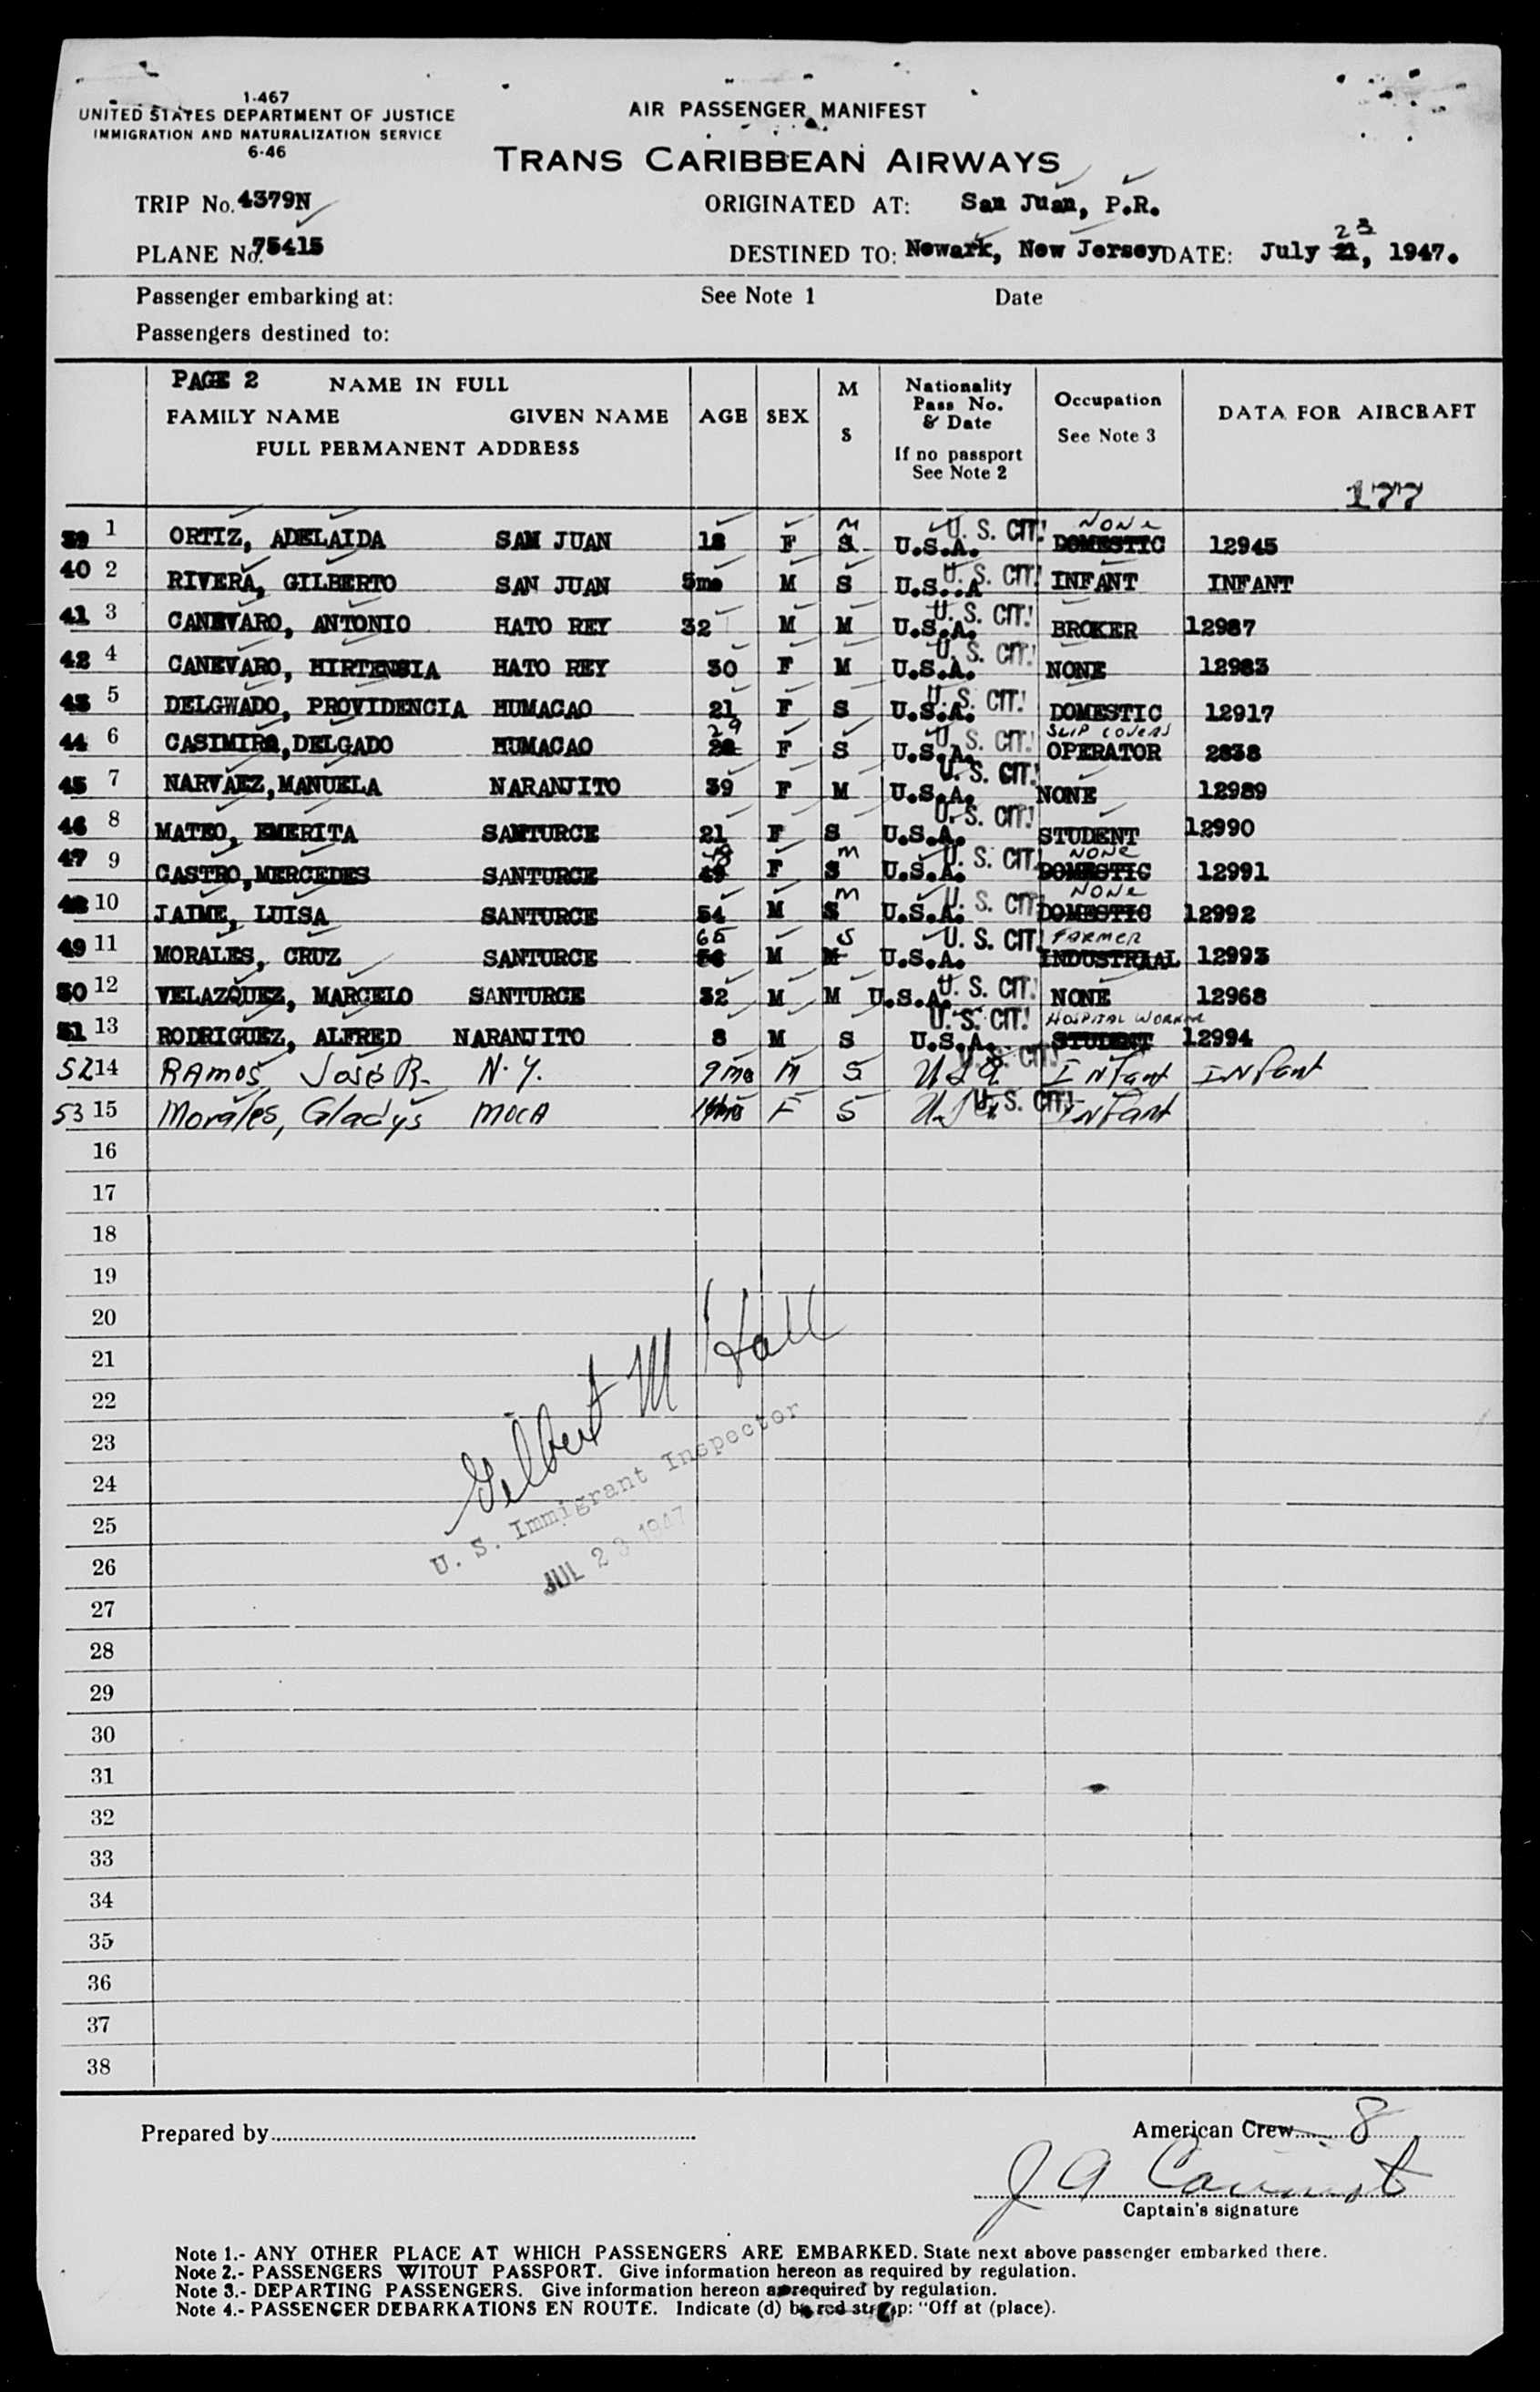 1-467
UNITED STATES DEPARTMENT OF JUSTICE
IMMIGRATION AND NATURALIZATION SERVICE
6-46
AIR PASSENGER MANIFEST
TRANS CARIBBEAN AIRWAYS
TRIP No. 4379N ORIGINATED AT: San Juan, P.R.
23
PLANE No. 75415 DESTINED TO: Newark, New Jersey DATE: July 21, 1947.
Passenger embarking at: See Note 1 Date
Passengers destined to:
PAGE 2 NAME IN FULL
FAMILY NAME GIVEN NAME
FULL PERMANENT ADDRESS
AGE SEX
M
S
Nationality
Pass No.
& Date
If no passport
See Note 2
Occupation
See Note 3
DATA FOR AIRCRAFT
177
M U. S. CIT! NONE
39 1 ORTIZ, ADELAIDA SAN JUAN 18 F S U.S.A. DOMESTIC 12945
U. S. CIT!
40 2 RIVERA, GILBERTO SAN JUAN 5mo M S U.S..A INFANT INFANT
U. S. CIT!
41 3 CANEVARO, ANTONIO HATO REY 32 M M U.S.A. BROKER 12987
U. S. CIT!
42 4 CANEVARO, HIRTENSIA HATO REY 30 F M U.S.A. NONE 12983
U. S. CIT!
43 5 DELGWADO, PROVIDENCIA HUMACAO 21 F S U.S.A. DOMESTIC 12917
29 U. S. CIT! SLIP COVERS
44 6 CASIMIRO, DELGADO HUMACAO F S U.S.A. OPERATOR 2838
U. S. CIT!
45 7 NARVAEZ, MANUELA NARANJITO 39 F M U.S.A. NONE 12989
U. S. CIT!
46 8 MATEO, EMERITA SANTURCE 21 F S U.S.A. STUDENT 12990
M U. S. CIT! NONE
47 9 CASTRO, MERCEDES SANTURCE F S U.S.A. DOMESTIC 12991
M U. S. CIT! NONE
48 10 JAIME, LUISA SANTURCE 54 M S U.S.A. DOMESTIC 12992
65 S U. S. CIT! FARMER
49 11 MORALES, CRUZ SANTURCE M M U.S.A. INDUSTRAAL 12993
U. S. CIT!
50 12 VELAZQUEZ, MARCELO SANTURCE 32 M M U.S.A. NONE 12968
U. S. CIT! HOSPITAL WORKER
51 13 RODRIGUEZ, ALFRED NARANJITO 8 M S U.S.A. STUDENT 12994
U. S. CIT!
52 14 RAMOS, José R. N. Y. 9 mo M S USA INfant INfant
U. S. CIT!
53 15 Morales, Gladys MOCA F S INfant
16
17
18
19
20
21
22
23
24
25
26
27
28
29
30
31
32
33
34
35
36
37
38
Gilbert M Hall
U. S. Immigrant Inspector
JUL 23 1947
Prepared by American Crew 8
J A
Captain's signature
Note 1.- ANY OTHER PLACE AT WHICH PASSENGERS ARE EMBARKED. State next above passenger embarked there.
Note 2.- PASSENGERS WITOUT PASSPORT. Give information hereon as required by regulation.
Note 3.- DEPARTING PASSENGERS. Give information hereon as required by regulation.
Note 4.- PASSENGER DEBARKATIONS EN ROUTE. Indicate (d) by red stamp: "Off at (place).